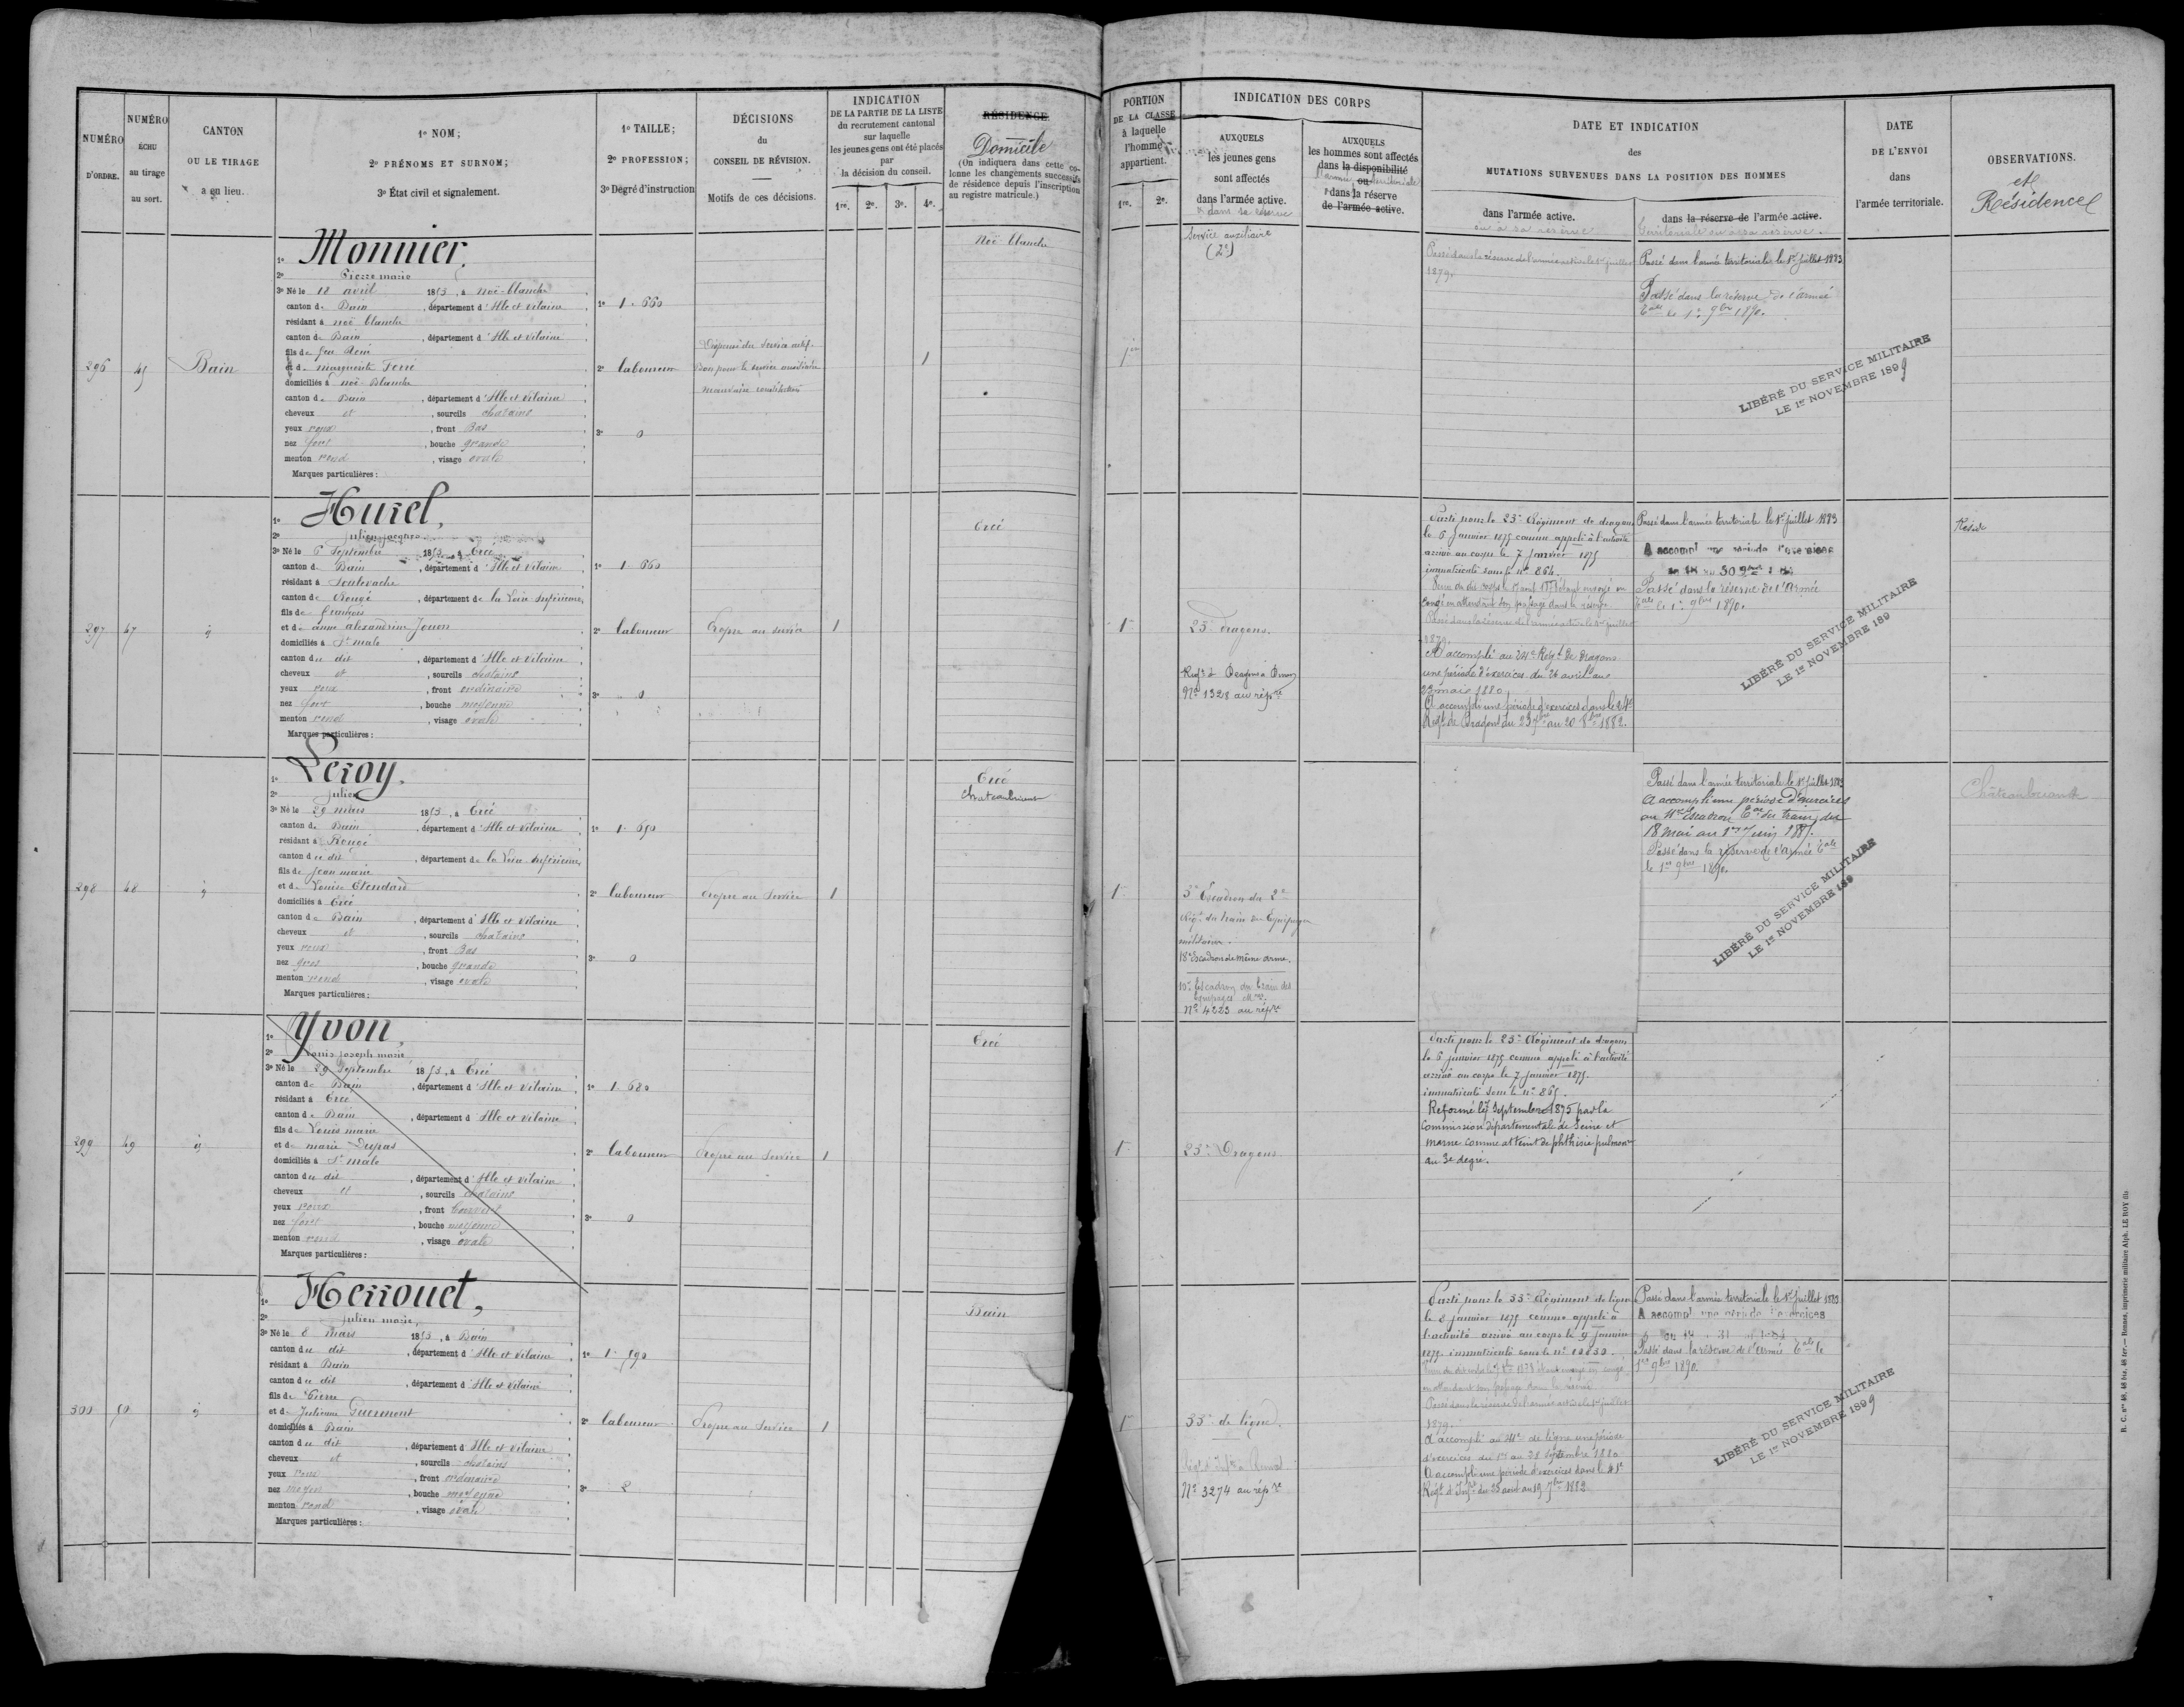 NUMÉRO D'ORDRE.
NUMÉRO ÉCHU au tirage au sort.
CANTON OU LE TIRAGE a eu lieu.
1º NOM;
2º PRÉNOMS ET SURNOM;
3º État civil et signalement.
1º TAILLE;
2º PROFESSION;
3º Degré d'instruction
DÉCISIONS
du
CONSEIL DE RÉVISION.
Motifs de ces décisions.
INDICATION
DE LA PARTIE DE LA LISTE
du recrutement cantonal
sur laquelle
les jeunes gens ont été placés
par
la décision du conseil.
1re. 2e. 3e. 4e.
RÉSIDENCE
Domicile
(On indiquera dans cette co-
lonne les changements successifs
de résidence depuis l'inscription
au registre matricule.)
PORTION
DE LA CLASSE
à laquelle
l'homme
appartient.
1re. 2e.
INDICATION DES CORPS
AUXQUELS
les jeunes gens
sont affectés
dans l'armée active.
& dans sa réserve
AUXQUELS
les hommes sont affectés
dans la disponibilité
l'armée ou territoriale
dans la réserve
de l'armée active.
DATE ET INDICATION
des
MUTATIONS SURVENUES DANS LA POSITION DES HOMMES
dans l'armée active.
ou à sa réserve
dans la réserve de l'armée active.
territoriale ou à sa réserve.
DATE
DE L'ENVOI
dans
l'armée territoriale.
OBSERVATIONS.
et
Résidence
296
45
Bain
1º Monnier,
2º Pierre marie
3º Né le 18 avril 1853, à Noë-blanche
canton de Bain, département d'Ille et Vilaine
résidant à noë blanche
canton de Bain, département d'Ille et Vilaine
fils de feu
et de marguerite Ferré
domiciliés à noë-Blanche
canton de Bain, département d'Ille et Vilaine
cheveux et, sourcils chatains
yeux roux, front Bas
nez fort, bouche grande
menton rond, visage ovale
Marques particulières:
1º 1.660
2º laboureur
3º 0
Dispensé du Service actif.
Bon pour le service auxiliaire
mauvaise constitution
1
Noë-blanche
1re
Service auxiliaire
(2e)
Passé dans la réserve de l'armée active le 1er juillet
1879.
Passé dans l'armée territoriale le 1er juillet 1883
Passé dans la réserve de l'armée
tale le 1er 9bre 1890.
LIBÉRÉ DU SERVICE MILITAIRE
LE 1er NOVEMBRE 1899
297
47
1º Hurel,
2º Julien Jacques
3º Né le 6 Septembre 1853, à Ercé
canton de Bain, département d'Ille et Vilaine
résidant à Soulvache
canton de Rougé, département de la Loire Inférieure
fils de François
et de anne alexandrine Jouon
domiciliés à St malo
canton du dit, département d'Ille et Vilaine
cheveux et, sourcils chatains
yeux roux, front ordinaire
nez fort, bouche moyenne
menton rond, visage ovale
Marques particulières:
1º 1.660
2º laboureur
3º 0
Propre au service
1
Ercé
1re
23e Dragons.
Regt de Dragons à Dinan
No 1328 au répre
Parti pour le 23e Régiment de dragons
le 6 Janvier 1875 comme appelé à l'activité
arrivé au corps le 7 janvier 1875
immatriculé sous le no 864.
congé en attendant son passage dans la réserve
Passé dans la réserve de l'armée active le 1er juillet
1879.
A accompli au 24e Régt de Dragons
une période d'exercices du 26 avril au
23 mai 1880
A accompli une période d'exercices dans le 24e
Regt de Dragons du 23 7bre au 20 8bre 1882.
Passé dans l'armée territoriale le 1er juillet 1883
A accompl une période d'exercices
Passé dans la réserve de l'Armée
tale le 1er 9bre 1890.
LIBÉRÉ DU SERVICE MILITAIRE
LE 1er NOVEMBRE 189
298
48
1º Leroy,
2º Julien
3º Né le 29 mars 1853, à Ercé
canton de Bain, département d'Ille et Vilaine
résidant à Rougé
canton du dit, département de la Loire-Inférieure
fils de Jean marie
et de Louise Etendard
domiciliés à Ercé
canton de Bain, département d'Ille et Vilaine
cheveux et, sourcils chatains
yeux roux, front Bas
nez gros, bouche grande
menton rond, visage ovale
Marques particulières:
1º 1.690
2º laboureur
3º 0
Propre au Service
1
Ercé
Chateaubriant
1
3e Escadron du 2e
Régt du train des Equipages
militaires.
18e Escadron de même arme.
10e Escadron du train des
Equipages Mres.
No 4223 au répre
Passé dans l'armée territoriale le 1er juillet 1883
A accompli une période d'exercices
au 11e Escadron tal du train, du
18 mai au 1er juin 1887.
Passé dans la réserve de l'armée tale
le 1er 9bre 1890.
LIBÉRÉ DU SERVICE MILITAIRE
LE 1er NOVEMBRE 189
Châteaubriant
299
49
1º Yvon,
2º Louis Joseph marie
3º Né le 29 Septembre 1853, à Ercé
canton de Bain, département d'Ille et Vilaine
résidant à Ercé
canton de Bain, département d'Ille et Vilaine
fils de Louis marie
et de marie Dupas
domiciliés à St malo
canton du dit, département d'Ille et Vilaine
cheveux et, sourcils chatains
yeux roux, front
nez fort, bouche moyenne
menton rond, visage ovale
Marques particulières:
1º 1.680
2º laboureur
3º 0
Propre au Service
1
Ercé
1
23e Dragons
Parti pour le 23e Régiment de dragons
le 6 janvier 1875 comme appelé à l'activité
arrivé au corps le 7 Janvier 1875.
immatriculé sous le no 865.
Réformé le 7 Septembre 1875 par la
commission départementale de Seine et
marne comme atteint de phthisie pulmonre
au 3e degré.
300
50
1º Herrouet,
2º Julien marie,
3º Né le 8 mars 1853, à Bain
canton du dit, département d'Ille et Vilaine
résidant à Bain
canton du dit, département d'Ille et Vilaine
fils de Pierre
et de Julienne Guermont
domiciliés à Bain
canton du dit, département d'Ille et Vilaine
cheveux et, sourcils chatains
yeux roux, front ordinaire
nez moyen, bouche moyenne
menton rond, visage ovale
Marques particulières:
1º 1.590
2º laboureur
3º 2
Propre au Service
1
Bain
1re
33e de ligne.
No 3274 au répre
Parti pour le 33e Régiment de ligne
le 8 janvier 1875 comme appelé à
l'activité arrivé au corps le 9 janvier
1875. immatriculé sous le no 10830.
en attendant son passage dans la réserve
Passé dans la réserve de l'armée active le 1er juillet
1879.
A accompli au 41e de ligne une période
d'exercices du 1er au 28 Septembre 1880
A accompli une période d'exercices dans le 41e
Régt d'Infrie du 23 août au 19 7bre 1882
Passé dans l'armée territoriale le 1er juillet 1883
A accompl une période d'exercices
Passé dans la réserve de l'Armée tale le
1er 9bre 1890.
LIBÉRÉ DU SERVICE MILITAIRE
LE 1er NOVEMBRE 1899
R. C. nos 48, 48 bis, 48 ter. — Rennes, imprimerie militaire Alph. LE ROY fils